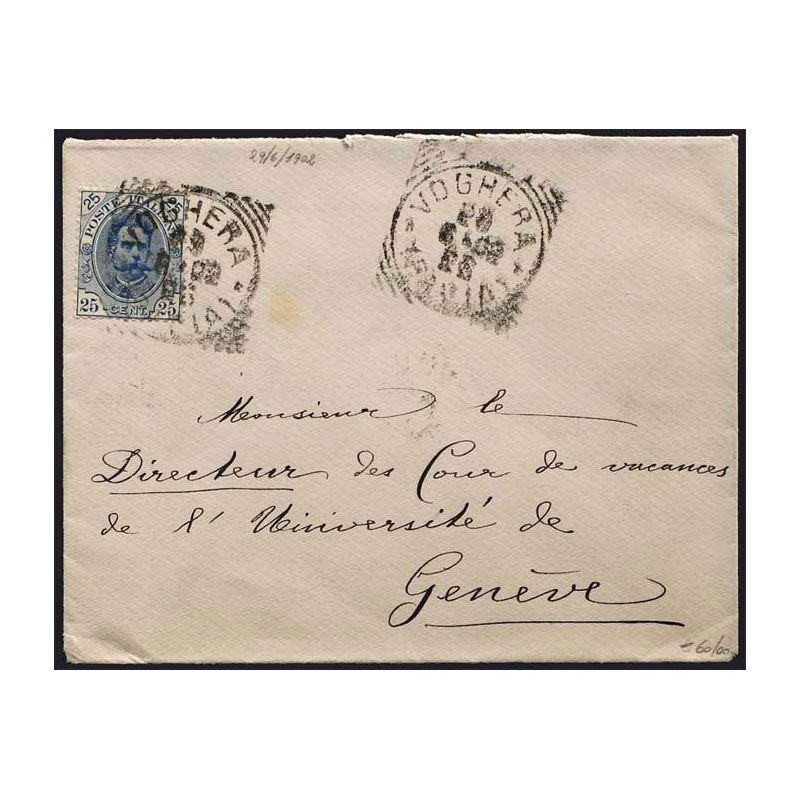 29/6/1902
25 25
POSTE ITALIANE
25 CENT. 25
VOGHERA
(PAVIA)
VOGHERA
(PAVIA)
Monsieur le
Directeur des Cour de vacances
de l'Université de
Genève
60/00